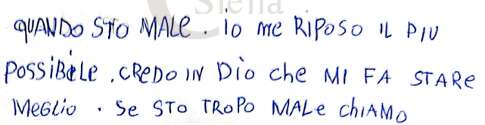 Siena
QUANDO STO MALE. io me RiPOSO IL PIU
POSSiBiLE. CREDO IN DiO che MI FA STARE
MeGLiO. Se STO TROPO MALe chiAMO